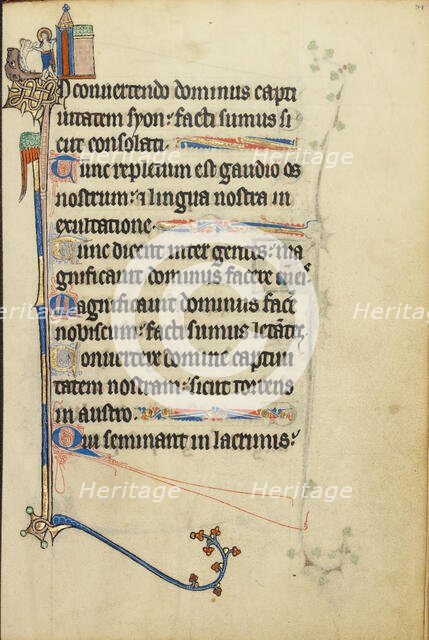 n conuertendo dominus capti
uitatem syon: facti sumus si
cut consolati.
Tunc repletum est gaudio os
nostrum: & lingua nostra in
exultatione.
Tunc dicent inter gentes: ma
gnificauit dominus facere
Magnificauit dominus face
nobiscum: facti sumus letātes
Conuertere domine captiui
tatem nostram: sicut torrens
in austro.
Qui seminant in lacrimis:
Heritage
Heritage
Heritage
Heritage
Heritage
Heritage
Heritage